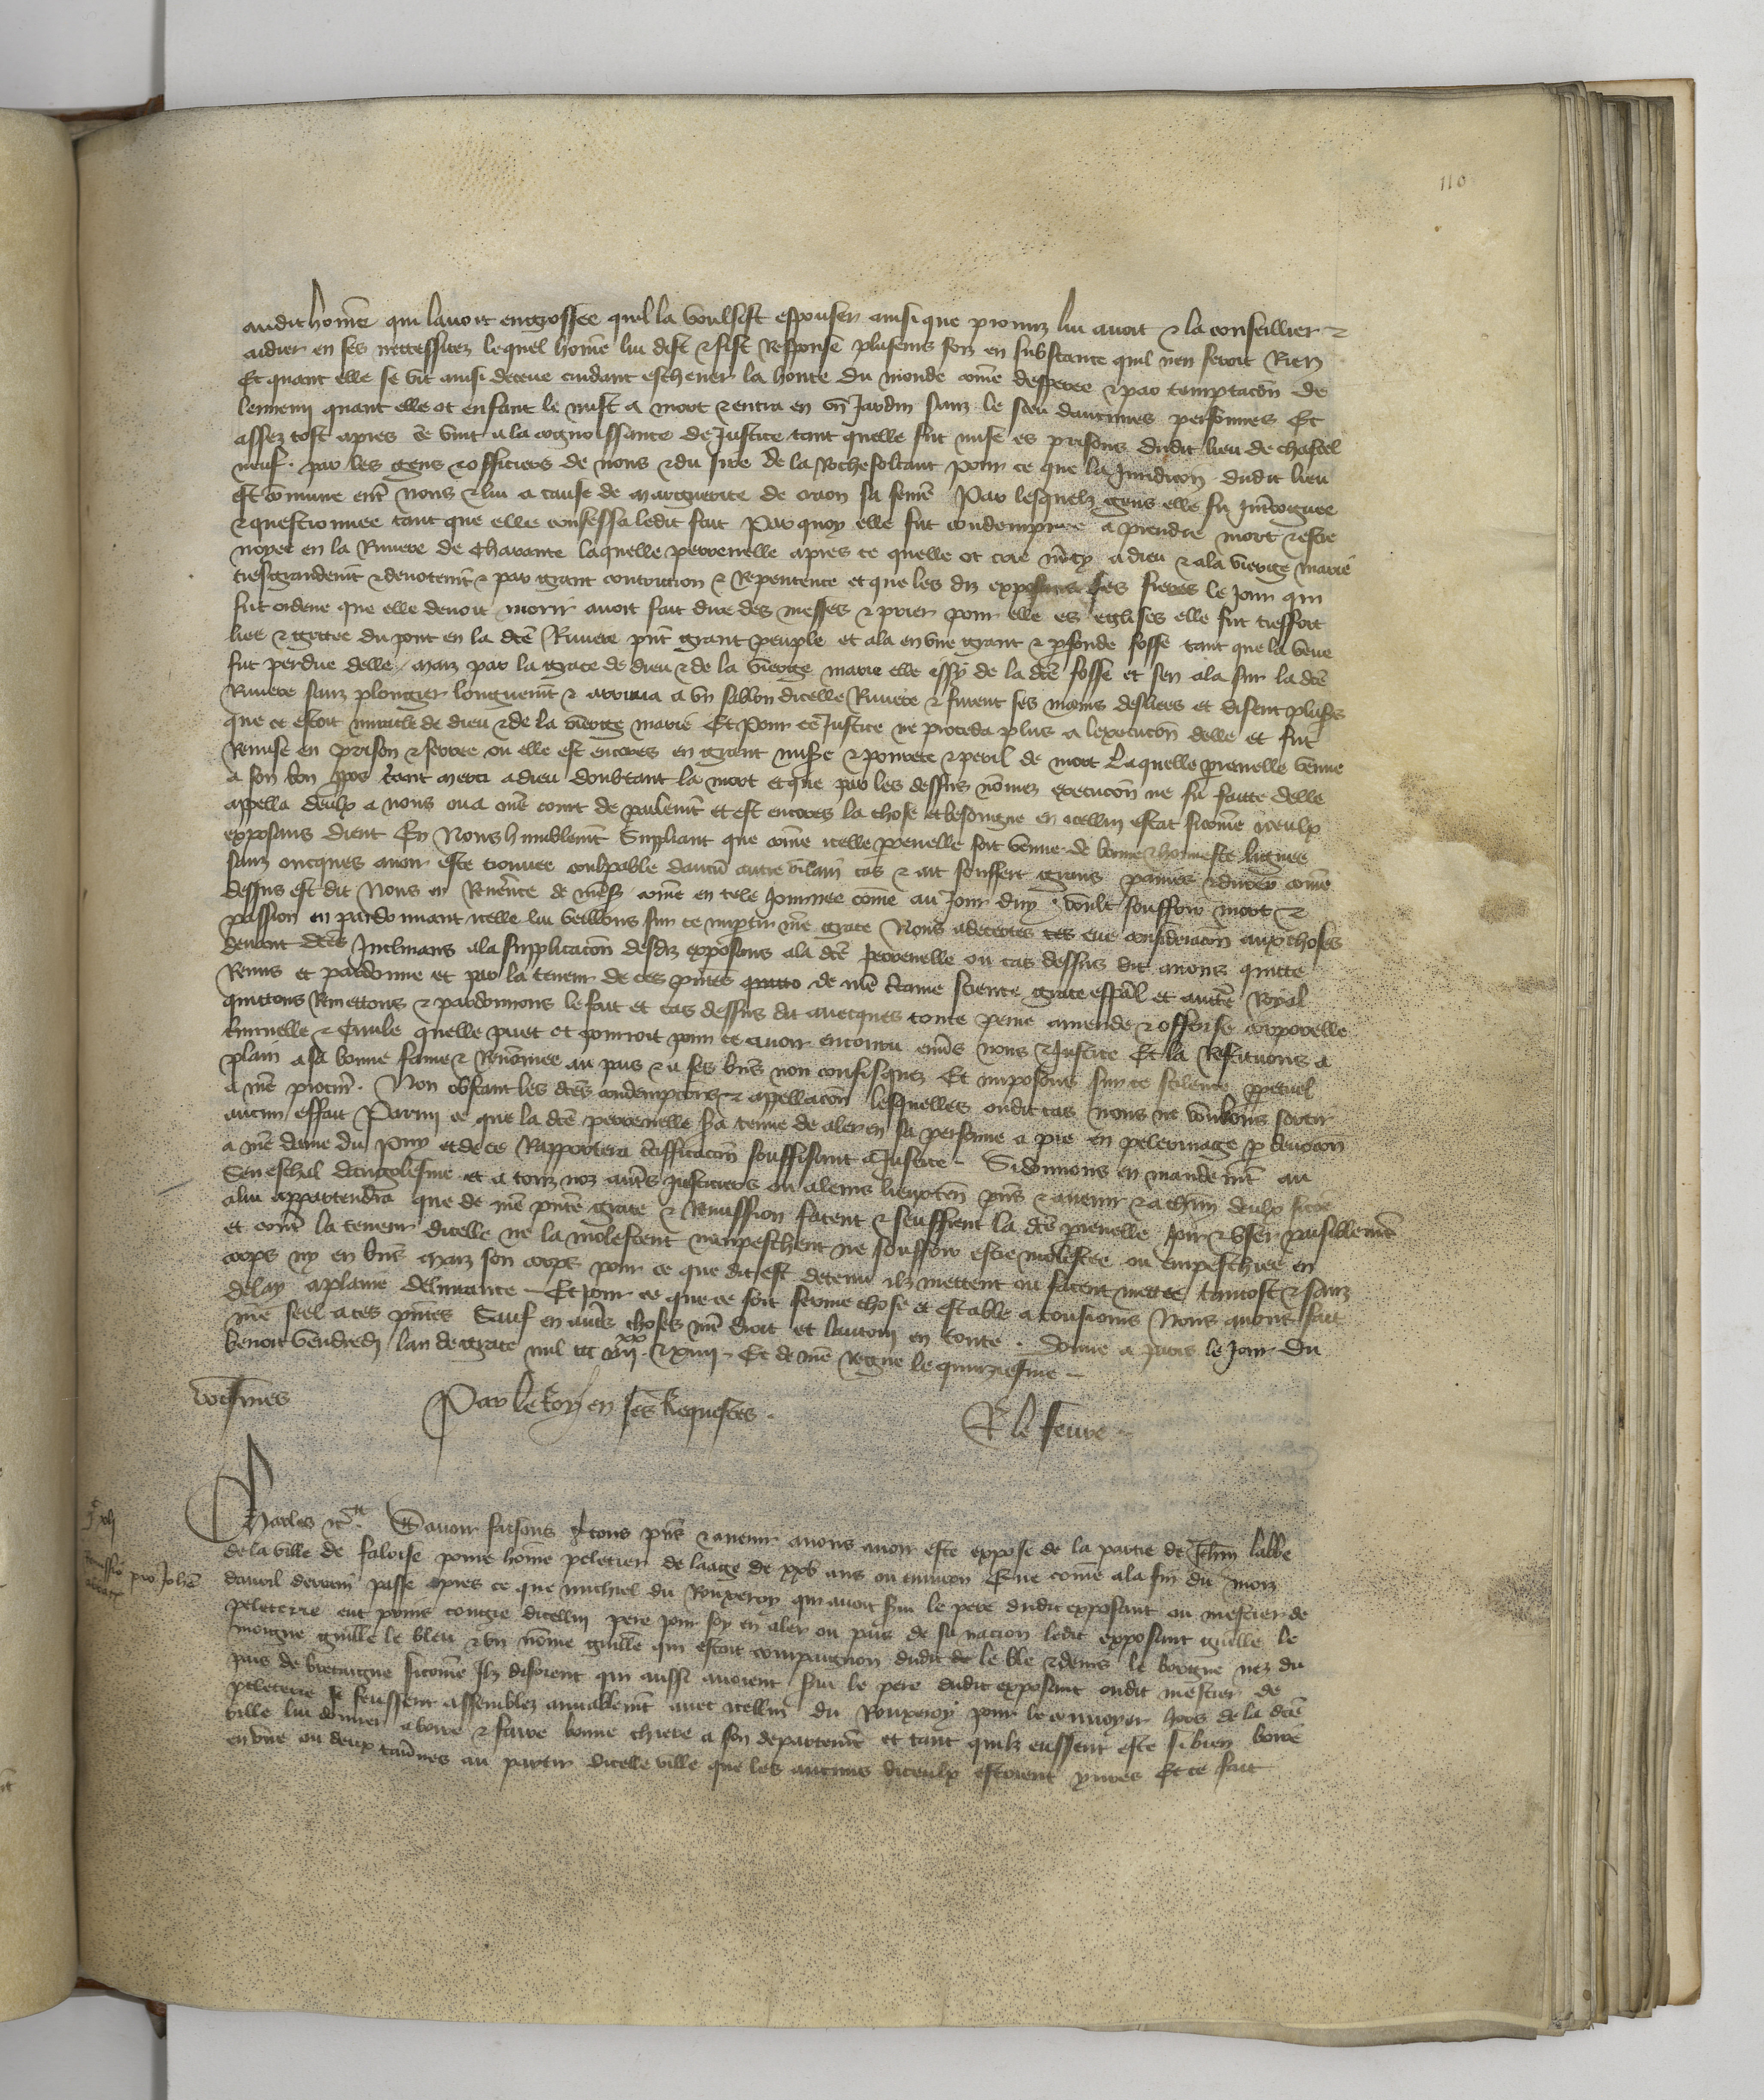 110
audit home qui lavoit engrossee quil la voulsist espouser ainsi que promis lui avoit & la conseillier &
aidier en ses necessitez lequel home lui dist & fist Response plusieurs foiz en substance quil nen feroit Riens
Et quant elle se vit ainsi deceue cuidant eschever la honte du monde come desperee & par temptacon de
lennemi quant elle ot enfant le mist a mort & entra en un Jardin sanz le sceu daucunes personnes Et
assez tost apres ce vint a la cognoissance de Justice tant quelle fut mise es prisons dudit lieu de chastel
neuf. par les gens & officiers de nous & du sire de la Rochefoltaut pour ce que la Juridicon dudit lieu
est comune entre nous & lui a cause de marguerite de craon sa feme Par lesquelz gens elle fu Interoguee
& questionnee tant que elle confessa ledit fait Par quoy elle fut condempnee a prendre mort & estre
noyee en la Riviere de Charante laquelle perrenelle apres ce quelle ot crie mercy a dieu & a la vierge marie
tresgrandement & devotement & par grant contricion & Repentence et que les diz exposans ses freres le Jour qui
fut ordene que elle devoit morir avoit fait dire des messes & prier pour elle es eglises elle fut tresfort
liee & gettee du pont en la dce Riviere pnt grant peuple et ala en une grant & pfonde fosse tant que la veue
fut perdue delle, maiz par la grace de dieu & de la vierge marie elle yssy de la dce fosse et sen ala sur la dce
Riviere sanz plongier longuement & arriva a un sablon dicelle Riviere & furent ses mains desliees et disent pluss
que ce estoit miracle de dieu & de la vierge marie Et Pour ce Justice ne proceda plus a lexecucon delle et fut
Remise en prison & ferree ou elle est encores en grant misere & povrete & peril de mort Laquelle prenelle venue
a son bon pos rant merci a dieu doubtant la mort et que par les dessus nomez execucon ne fu faitte delle
appella deulx a nous ou a nre court de parlement et est encores la chose et besoingne en icellui estat sicome iceulx
exposans dient En Nous humblement Suppliant que come icelle prenelle soit venue de bonne & honneste lignee
sanz oncques avoir este trouvee coulpable daucun autre vilain cas & ait souffert grans paines & durtez come
dessus est dit Nous en Reverence de come en tele Journee come au Jour duy voult souffrir mort &
passion en pardonnant icelle lui vueillons sur ce impartir nre grace Nous adecertes eue consideracon aux choses
devant dces Inclinans a la supplicacon desdiz exposans a la dce perrenelle ou cas dessus dit avons quitte
Remis et pardonne et par la teneur de ces pntes de nre certaine science grace espal et aucte Royal
quittons Remettons & pardonnons le fait et cas dessus dit avecques toute peine amende & offense corporelle
criminelle & Civile quelle puet et pourroit pour ce avoir encouru envs nous & Justice Et la Restituons a
plain a sa bonne fame & Renomee au pais & a ses biens non confisquez Et imposons sur ce scilence ppetuel
a nre procur. Non obstant les dces condempnacions & appellacon lesquelles oudit cas nous ne voulons sortir
aucun effait Parmi ce que la dce perrenelle sera tenue de aler en sa personne a pie en pelerinage p devocon
a nre dame du Puy et de ce Rapportera certifficacon souffisant a Justice - Si donnons en mandement au
Seneschal dangolesme et a touz noz autrs Justiciers ou a leurs lieuxten pns & avenir & a chun deulx sicoe
a lui appartendra que de nre pnte grace & Remission facent & seuffrent la dce prenelle Joir & user paisiblement
et contre la teneur dicelle ne la molestent nempeschent ne seuffrir estre molestee ou empeschiee en
corps ny en biens maiz son corps pour ce que dit est detenu ilz mettent ou facent mettre tantost & sanz
delay a plaine delivrance - Et pour ce que ce soit ferme chose et estable a tousiours Nous avons fait
mre seel a ces pntes Sauf en autrs choses nre droit et lautruy en toute. Donne a Paris le Jour du
benoit vendredi lan de grace mil ccc iiii xx & xiiii Et de nre regne le quinziesme -
Par le Roy en ses Requestes.
P le fevre
Charles &c Savoir faisons a tous pns & avenir avons avoir este expose de la partie de Jehan labbe
de la ville de faloise povre home peletier de laage de xxv ans ou environ Que come a la fin du mois
davril derrein passe apres ce que michiel du Rouxeroy qui avoit servi le pere dudit exposant ou mestier de
peleterie eut prins congie dicellui pere pour soy en aler ou pais de sa nacion ledit exposant guille le
moigne guille le bleu & un nome guille qui estoit compaignon dudit le ble & denis le borgne nez du
pais de bretaigne sicome Ilz disoient qui aussi avoient servi le pere dudit exposant oudit mestier de
peleterie se feussent assemblez amiablement avec icellui du Rouxeroy pour le convoyer hors de la dce
ville lui donner a boire & faire bonne chiere a son departement et tant quilz eussent este si bien boire
en une ou deux tavnes au partir dicelle ville que les aucuns diceulx estoient yvres Et ce fait
Remissio pro Johe
abbate